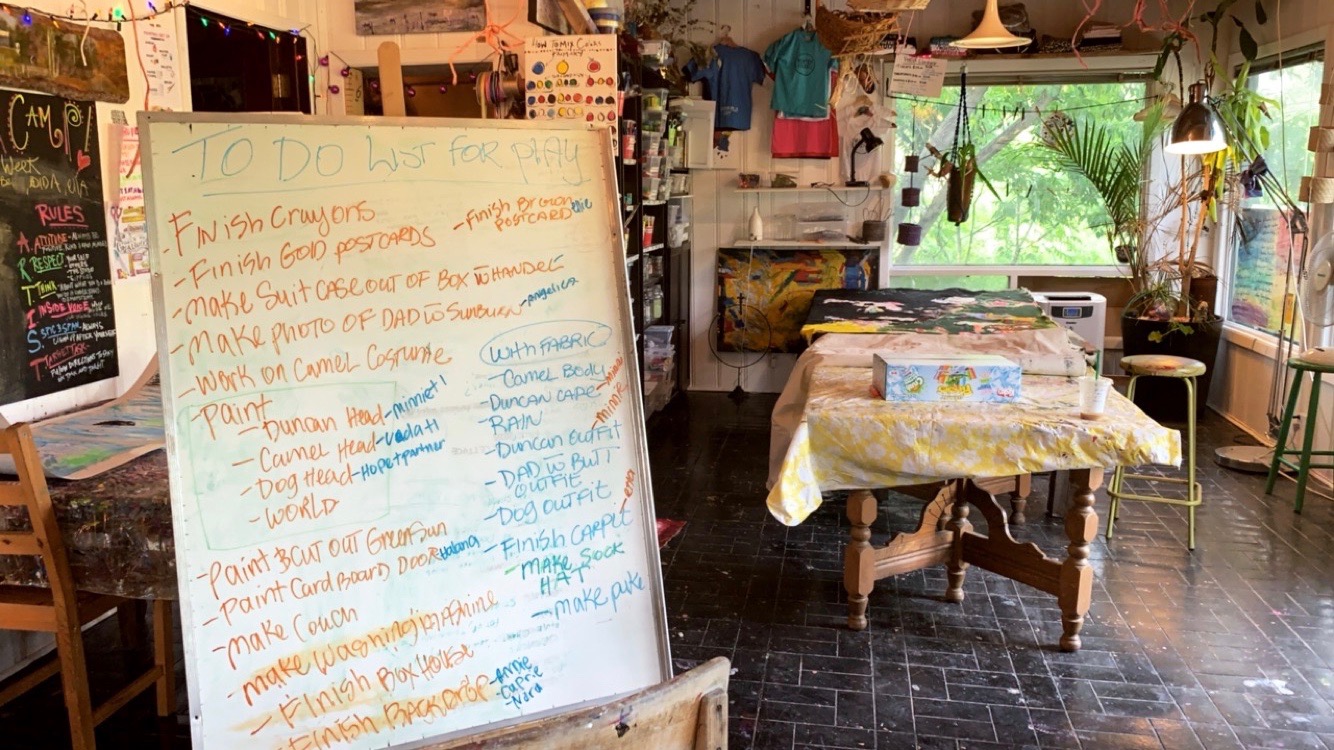 CAMP!
WEEK
RULES
A. ATTITUDE
R. RESPECT
T. THINK
I. INSIDE VOICE
S.
T. TARGET TASK
HOW TO MIX COLORS
TO DO LIST FOR PLAY
-FINISH CRAYONS
-FINISH GOLD POSTCARDS
-FINISH BROWN
POSTCARD
-MAKE SUITCASE OUT OF BOX W HANDLE
-MAKE PHOTO OF DAD W SUNBURN -Angelica
-WORK ON CAMEL COSTUME
-PAINT
-DUNCAN HEAD -minnie!
-CAMEL HEAD
-DOG HEAD -Hope+partner
-WORLD
-PAINT & CUT OUT GREEN SUN
-PAINT CARDBOARD DOOR
-MAKE COUCH
-MAKE WASHING MACHINE
-FINISH BOX HOUSE
-FINISH BACKDROP -Annie
-Caprie
-Nora
WITH FABRIC
-CAMEL BODY
-DUNCAN CAPE -minnie
-RAIN
-DUNCAN OUTFIT -minnie
-DAD W BUTT
OUTFIT
-DOG OUTFIT
-FINISH CARPET
MAKE SLOCK
HAT
-MAKE PUKE